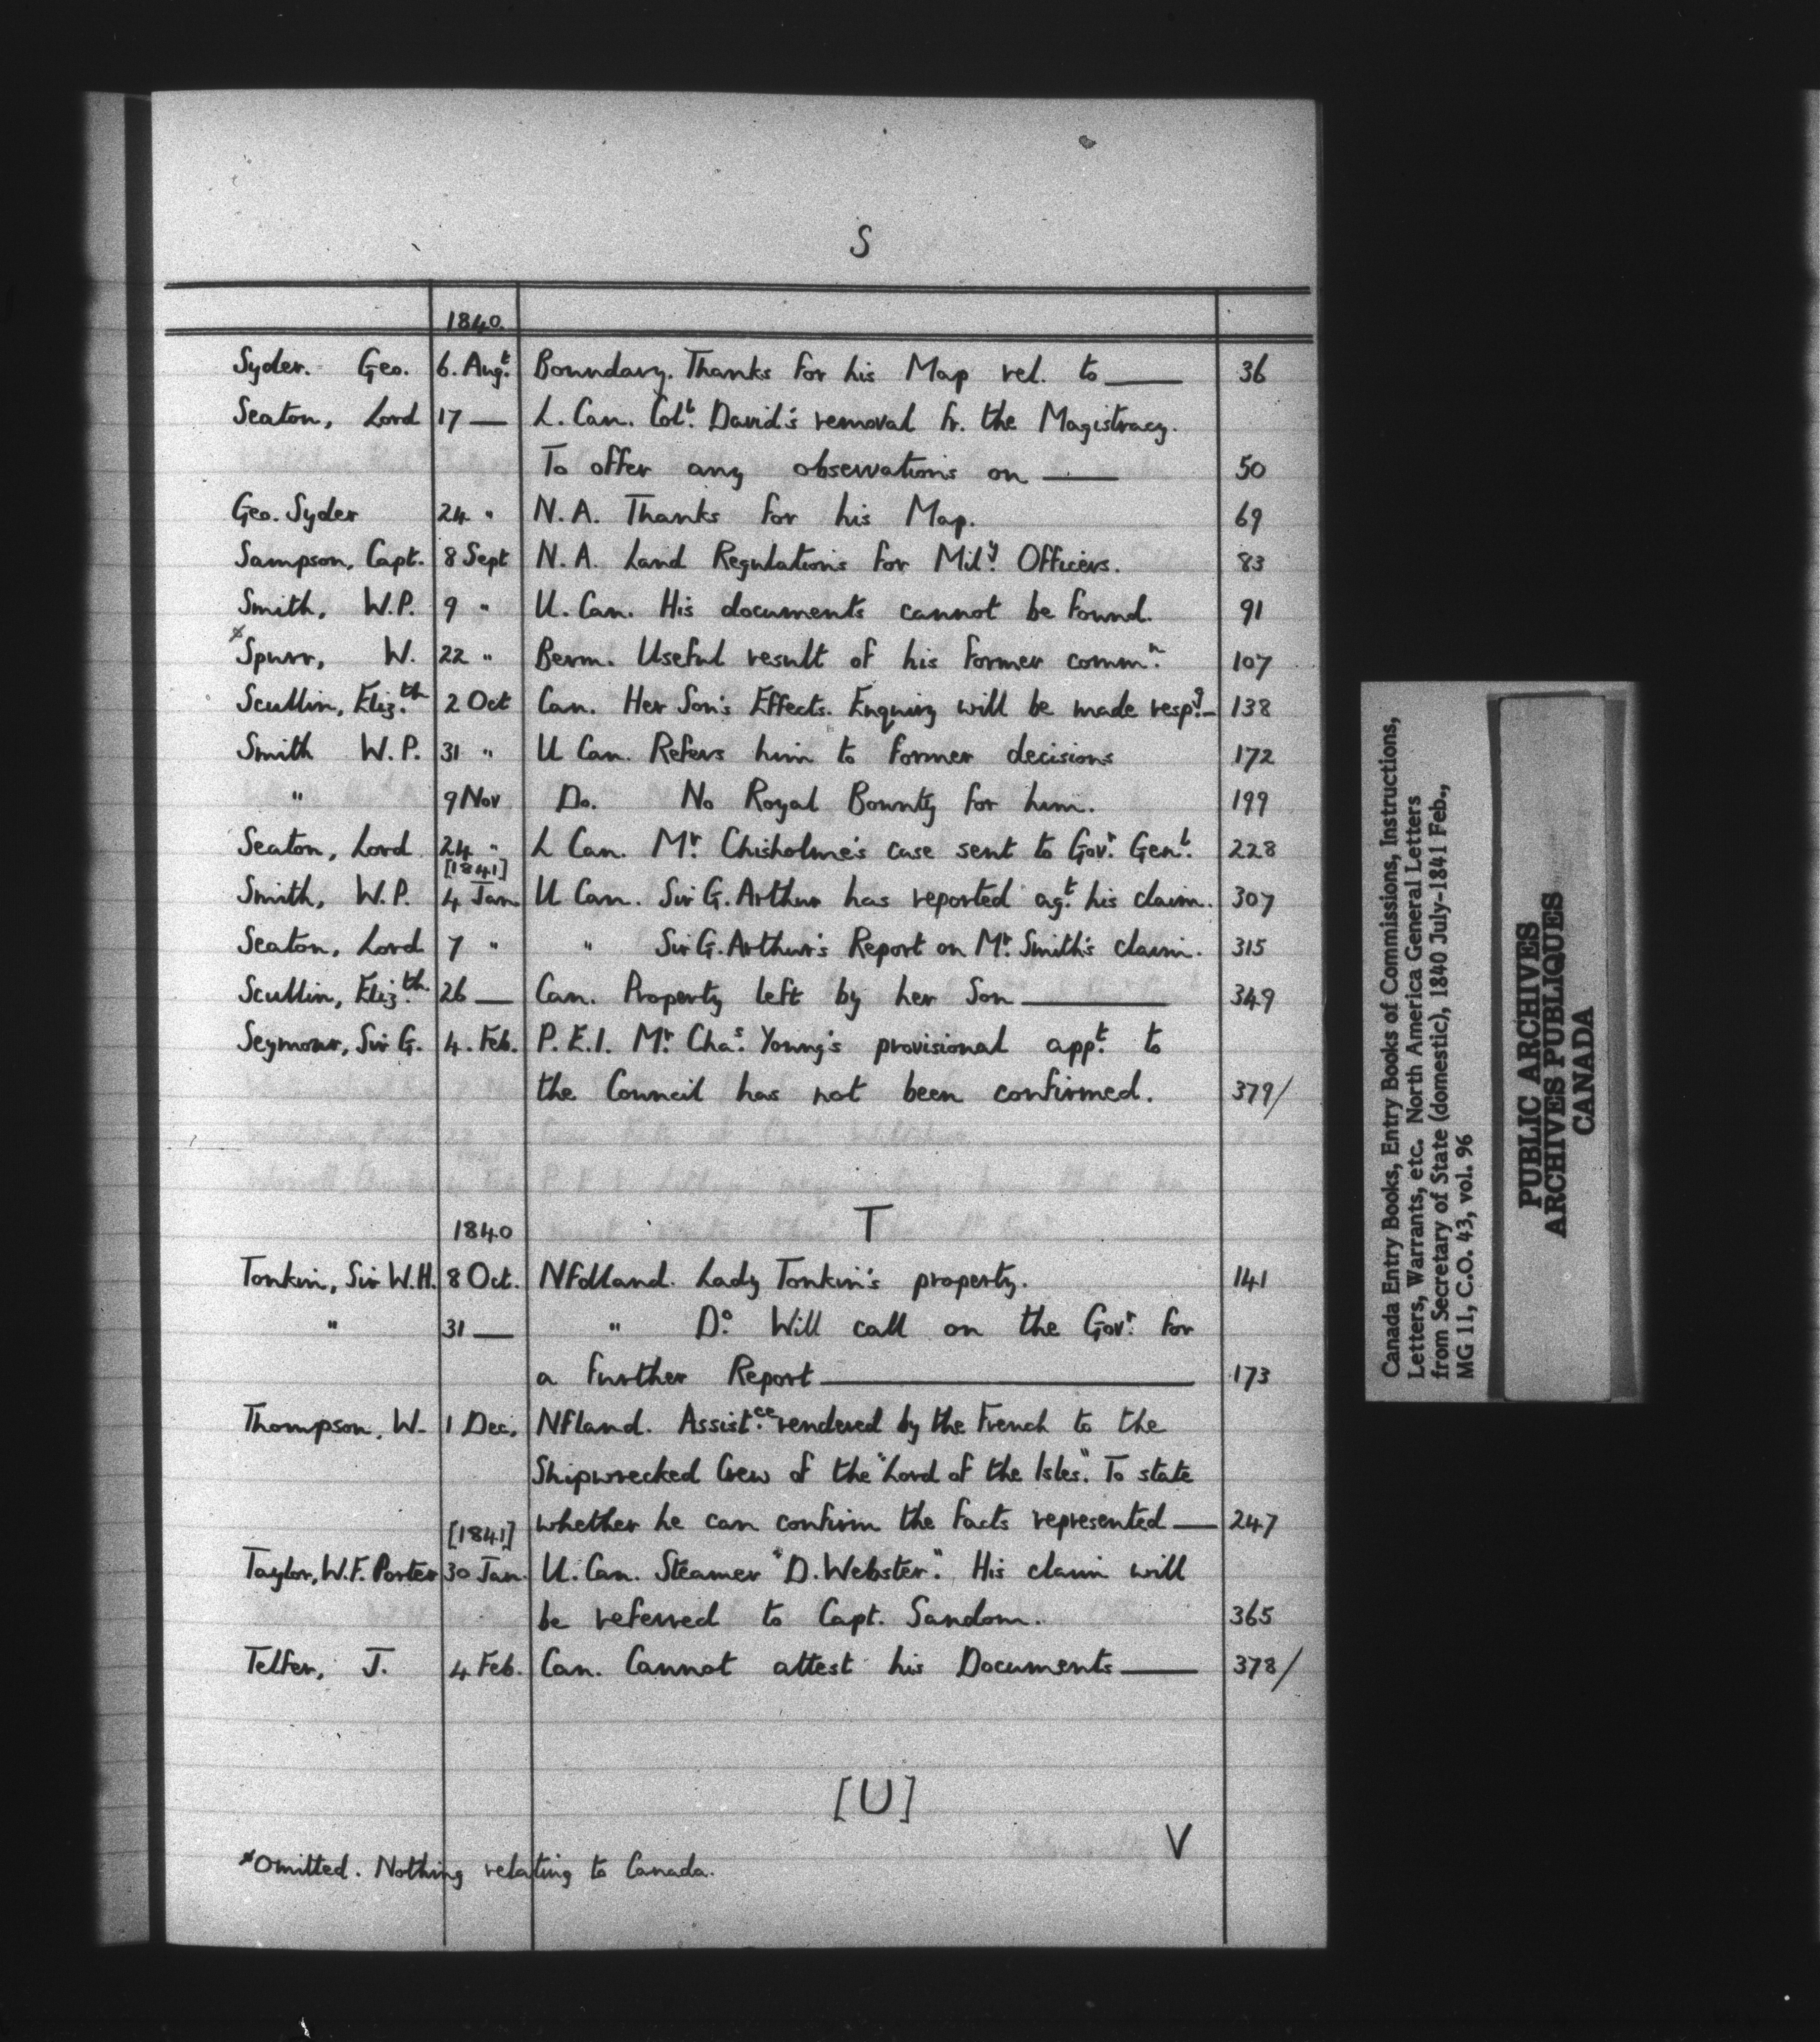 S
1840.
Syder. Geo. 6. Augt. Boundary. Thanks for his Map rel. to — 36
Seaton, Lord 17 — L. Can. Coll. David's removal fr. the Magistracy.
To offer any observations on — 50
Geo. Syder 24 " N.A. Thanks for his Map. 69
Sampson, Capt. 8 Sept N.A. Land Regulations for Mily. Officers. 83
Smith, W.P. 9 " U. Can. His documents cannot be found. 91
ˣSpurr, W. 22 " Berm. Useful result of his former commn. 107
Scullin, Eliz.th 2 Oct Can. Her Son's Effects. Enquiry will be made respg.— 138
Smith W.P. 31 " U Can. Refers him to former decisions 172
" 9 Nov Do. No Royal Bounty for him. 199
Seaton, Lord 24 " L Can. Mr. Chisholme's case sent to Govr. Genl. 228
[1841]
Smith, W.P. 4 Jan. U Can. Sir G. Arthur has reported agt. his claim. 307
Seaton, Lord 7 " " Sir G. Arthur's Report on Mr. Smith's claim. 315
Scullin, Eliz.th. 26 — Can. Property left by her Son — 349
Seymour, Sir G. 4. Feb. P.E.I. Mr. Chas. Young's provisional appt. to
the Council has not been confirmed. 379/
1840 T
Tonkin, Sir W.H. 8 Oct. NFdland. Lady Tonkin's property. 141
" 31 — " Do. Will call on the Govr. for
a further Report — 173
Thompson, W. 1 Dec. NFland. Assist.ce rendered by the French to the
Shipwrecked Crew of the "Lord of the Isles". To state
[1841] whether he can confirm the facts represented — 247
Taylor, W.F. Porter 30 Jan. U. Can. Steamer "D. Webster". His claim will
be referred to Capt. Sandom. 365
Telfer, J. 4 Feb. Can. Cannot attest his Documents — 378/
[U]
V
ˣOmitted. Nothing relating to Canada.
Canada Entry Books, Entry Books of Commissions, Instructions,
Letters, Warrants, etc. North America General Letters
from Secretary of State (domestic), 1840 July-1841 Feb.,
MG 11, C.O. 43, vol. 96
PUBLIC ARCHIVES
ARCHIVES PUBLIQUES
CANADA